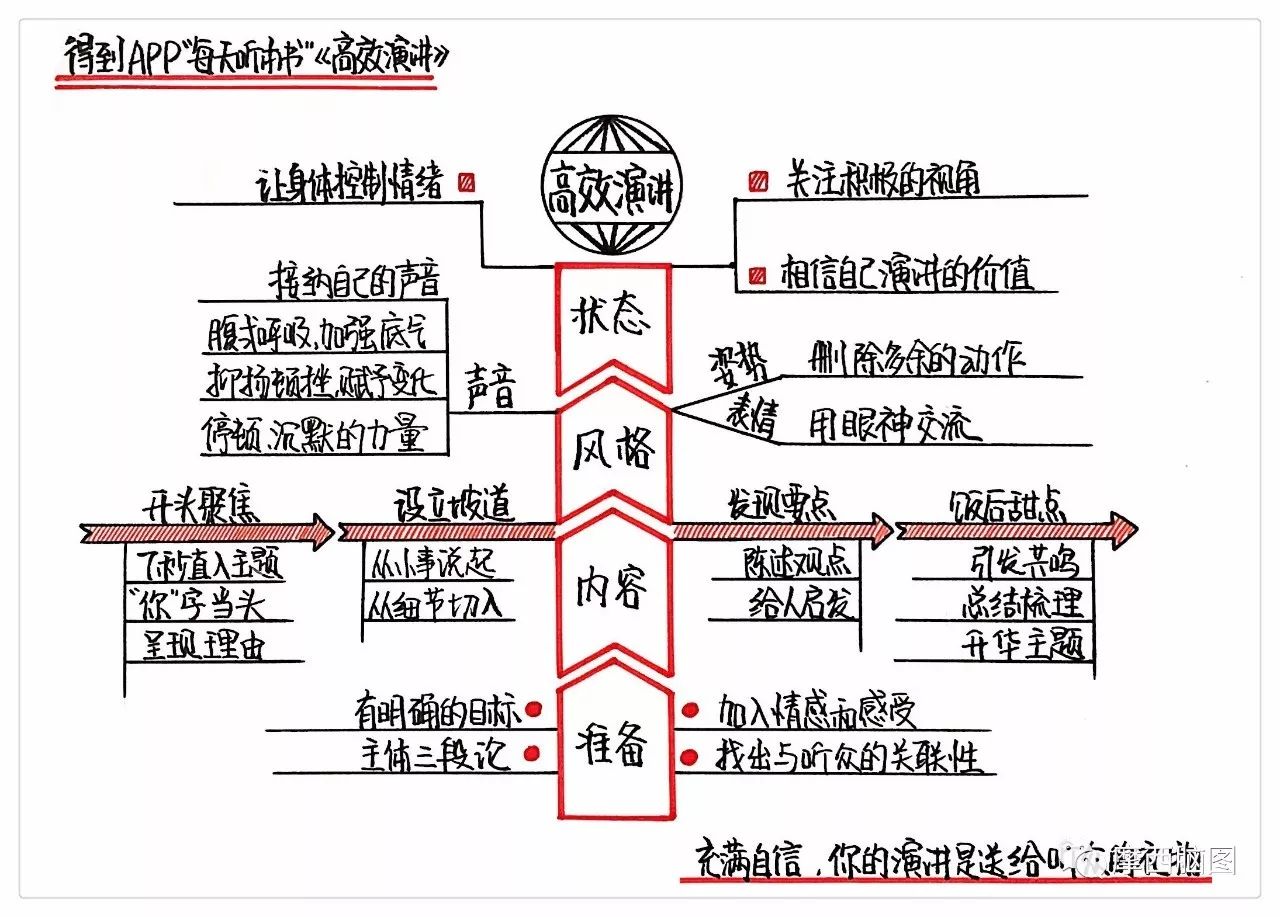 得到APP"每天听本书"《高效演讲》
高效演讲
让身体控制情绪
关注积极的视角
相信自己演讲的价值
状态
接纳自己的声音
腹式呼吸、加强底气
抑扬顿挫、赋予变化
停顿、沉默的力量
声音
姿势
删除多余的动作
表情
用眼神交流
风格
开头聚焦
7秒直入主题
"你"字当头
呈现理由
设立坡道
从小事说起
从细节切入
内容
发现要点
陈述观点
给人启发
饭后甜点
引发共鸣
总结梳理
升华主题
有明确的目标
主体三段论
准备
加入情感和感受
找出与听众的关联性
充满自信,你的演讲是送给听
摩西脑图